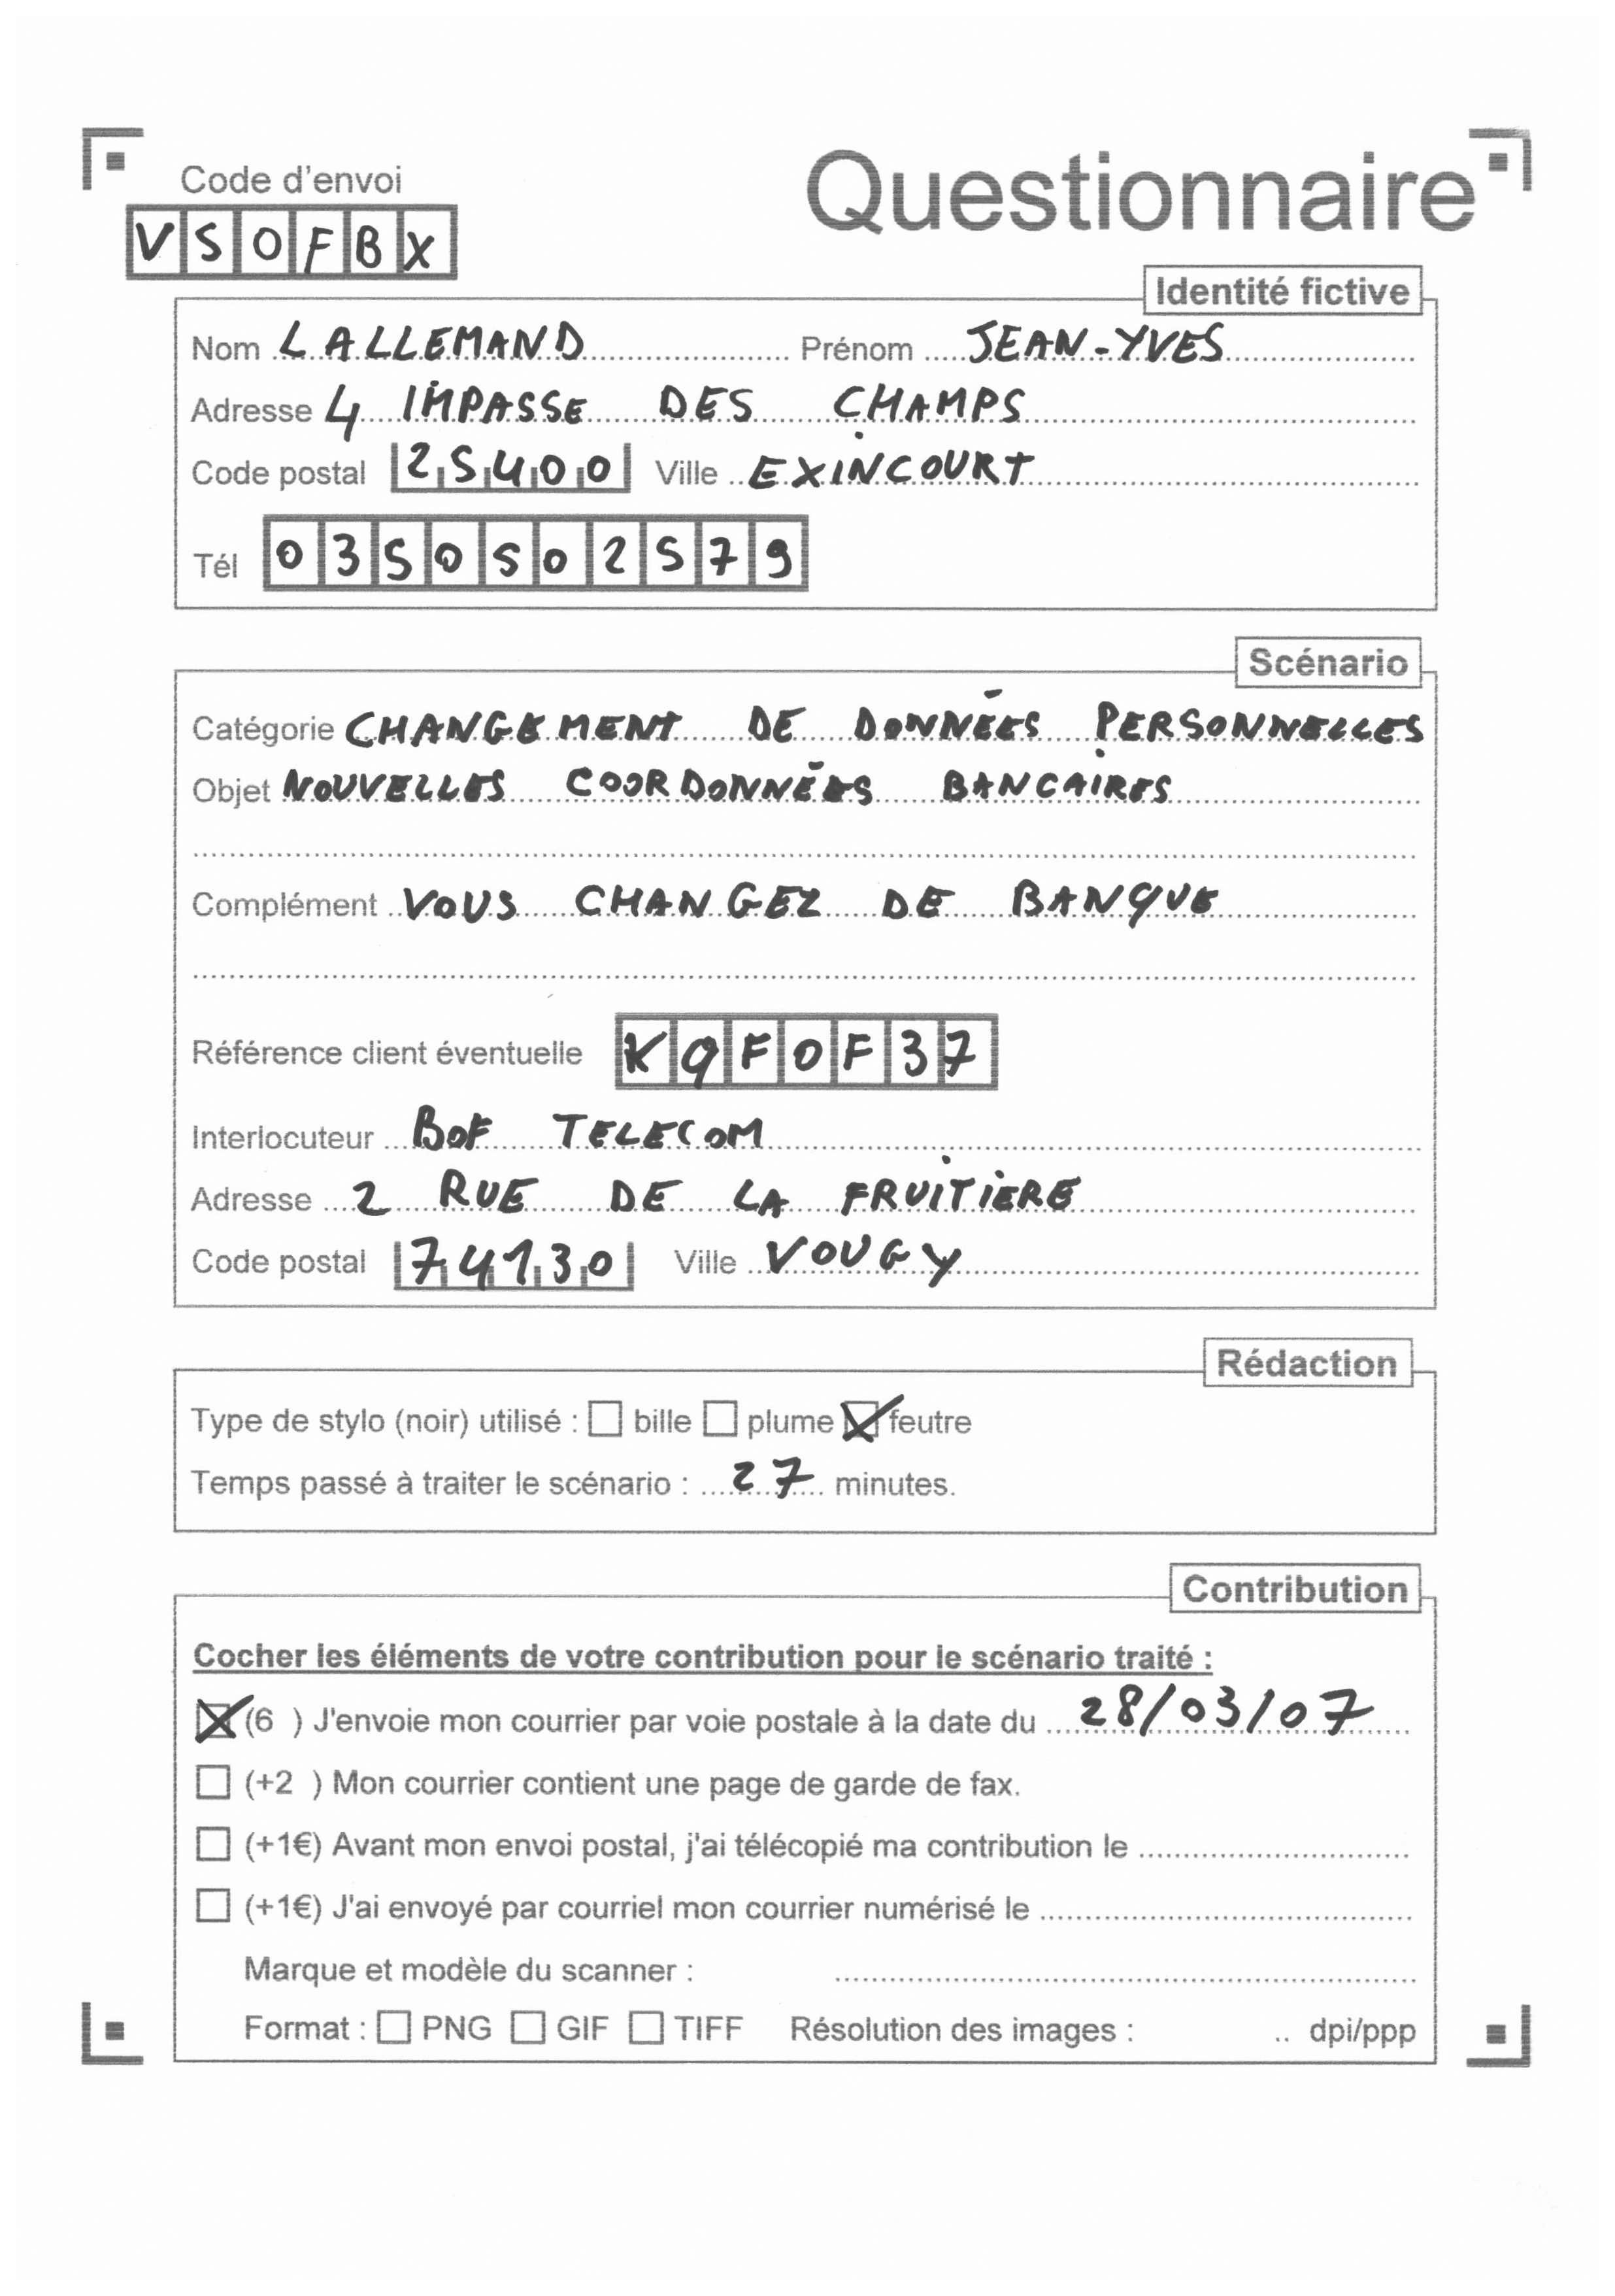 Code d'envoi
Questionnaire
VSOFBX
Identité fictive
Nom LALLEMAND Prénom JEAN-YVES
Adresse 4 IMPASSE DES CHAMPS
Code postal 25400 Ville EXINCOURT
Tél 0350502579
Scénario
Catégorie CHANGEMENT DE DONNÉES PERSONNELLES
Objet NOUVELLES COORDONNÉES BANCAIRES
Complément VOUS CHANGEZ DE BANQUE
Référence client éventuelle KQFOF37
Interlocuteur BOF TELECOM
Adresse 2 RUE DE LA FRUITIERE
Code postal 74130 Ville VOUGY
Rédaction
Type de stylo (noir) utilisé : ☐ bille ☐ plume ☒ feutre
Temps passé à traiter le scénario : 27 minutes.
Contribution
Cocher les éléments de votre contribution pour le scénario traité :
☒ (6 ) J'envoie mon courrier par voie postale à la date du 28/03/07
☐ (+2 ) Mon courrier contient une page de garde de fax.
☐ (+1€) Avant mon envoi postal, j'ai télécopié ma contribution le
☐ (+1€) J'ai envoyé par courriel mon courrier numérisé le
Marque et modèle du scanner :
Format : ☐ PNG ☐ GIF ☐ TIFF Résolution des images : .. dpi/ppp